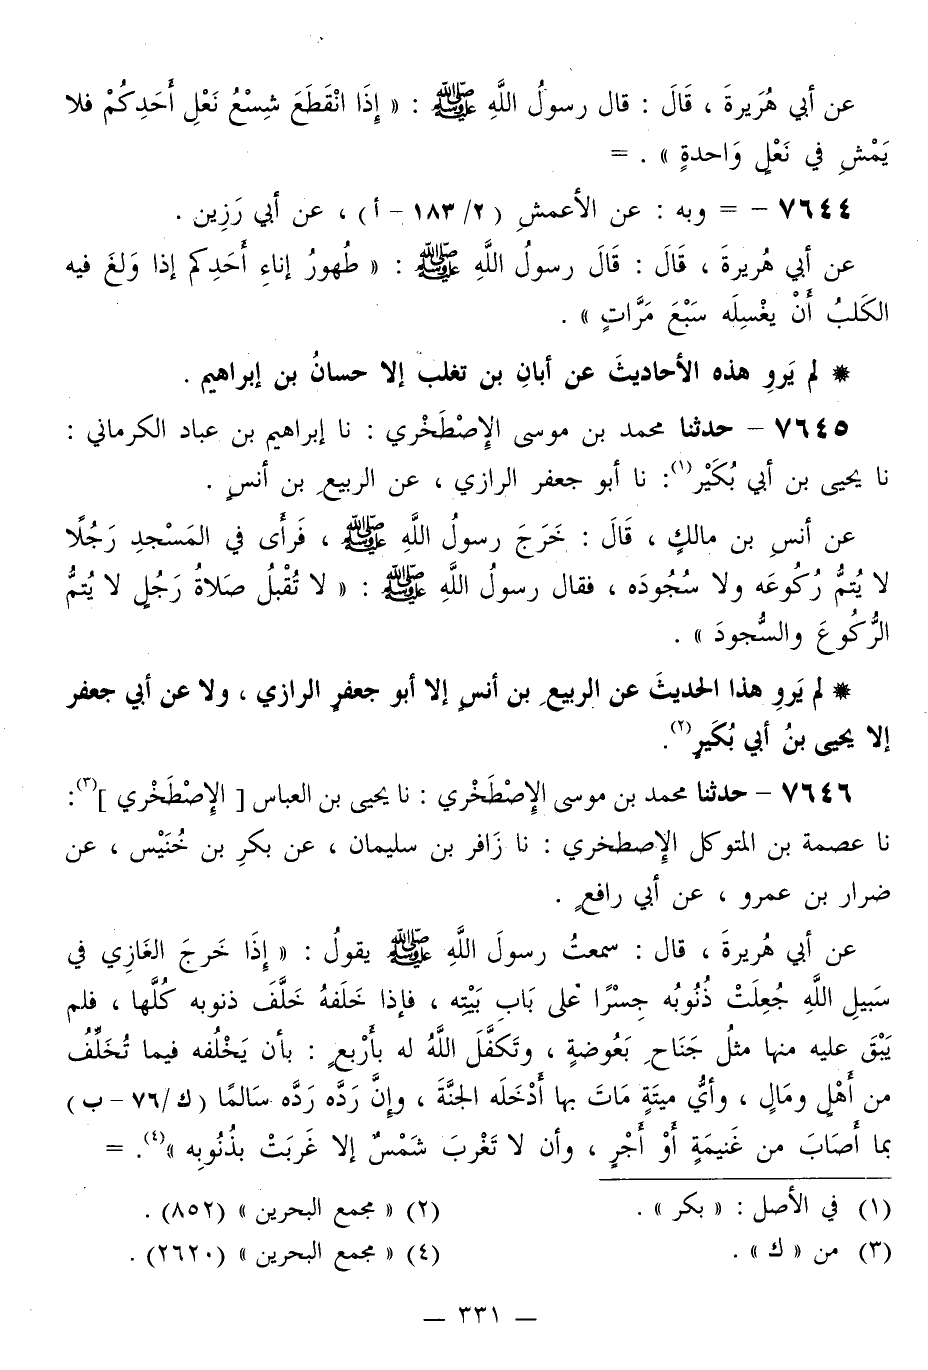 عن أبي هُرَيرةَ ، قَالَ : قال رسولُ اللَّهِ ﷺ : « إِذَا انْقَطَعَ شِسْعُ نَعْلِ أَحَدِكُمْ فلا
يَمْشِ في نَعْلٍ وَاحدةٍ » . =
٧٦٤٤ – = وبه : عن الأعمشِ ( ٢/ ١٨٣ – أ ) ، عن أبي رَزِين .
عن أبي هُريرةَ ، قَالَ : قَالَ رسولُ اللَّهِ ﷺ : « طُهورُ إناءِ أَحَدِكم إذا وَلغَ فيه
الكَلبُ أَنْ يغْسِلَه سَبْعَ مَرَّاتٍ » .
* لم يَروِ هذه الأحاديثَ عن أبانِ بن تغلب إلا حسانُ بن إبراهيم .
٧٦٤٥ – حدثنا محمد بن موسى الإِصْطَخْري : نا إبراهيم بن عباد الكرماني :
نا يحيى بن أبي بُكَيْر(١): نا أبو جعفر الرازي ، عن الربيعِ بن أنسٍ .
عن أنسِ بن مالكٍ ، قَالَ : خَرَجَ رسولُ اللَّهِ ﷺ ، فَرأَى في المَسْجدِ رَجُلًا
لا يُتمُّ رُكُوعَه ولا سُجُودَه ، فقال رسولُ اللَّهِ ﷺ : « لا تُقْبلُ صَلاةُ رَجُلٍ لا يُتمُّ
الرُّكُوعَ والسُّجودَ » .
* لم يَروِ هذا الحديثَ عن الربيعِ بن أنسٍ إلا أبو جعفرٍ الرازي ، ولا عن أبي جعفر
إلا يحيى بنُ أبي بُكَيرٍ(٢).
٧٦٤٦ – حدثنا محمد بن موسى الإِصْطَخْري : نا يحيى بن العباس [ الإِصْطَخْري ](٣):
نا عصمة بن المتوكل الإصطخري : نا زَافر بن سليمان ، عن بكرِ بن خُنَيْس ، عن
ضرار بن عمرو ، عن أبي رافعٍ .
عن أبي هُريرةَ ، قال : سمعتُ رسولَ اللَّهِ ﷺ يقولُ : « إِذَا خَرجَ الغَازِي في
سَبيلِ اللَّهِ جُعِلَتْ ذُنُوبُه جِسْرًا على بَابِ بَيْتِه ، فإذا خَلَفهُ خَلَّفَ ذنوبه كُلَّها ، فلم
يَبْقَ عليه منها مثلُ جَنَاحِ بَعُوضةٍ ، وتَكفَّلَ اللَّهُ له بأَرْبعٍ : بأن يَخْلُفه فيما تُخَلِّفُ
من أَهْلٍ ومَالٍ ، وأيُّ ميتَةٍ مَاتَ بها أَدْخَله الجنَّةَ ، وإنَّ ردَّه رَدَّه سَالمًا ( ك/٧٦ – ب )
بما أَصَابَ من غَنيمَةٍ أَوْ أَجْرٍ ، وأن لا تَغْربَ شَمْسٌ إلا غَربَتْ بذُنُوبِه »(٤). =
(١) في الأصل : « بكر » .
(٢) « مجمع البحرين » (٨٥٢) .
(٣) من « ك » .
(٤) « مجمع البحرين » (٢٦٢٠) .
– ٣٣١ –